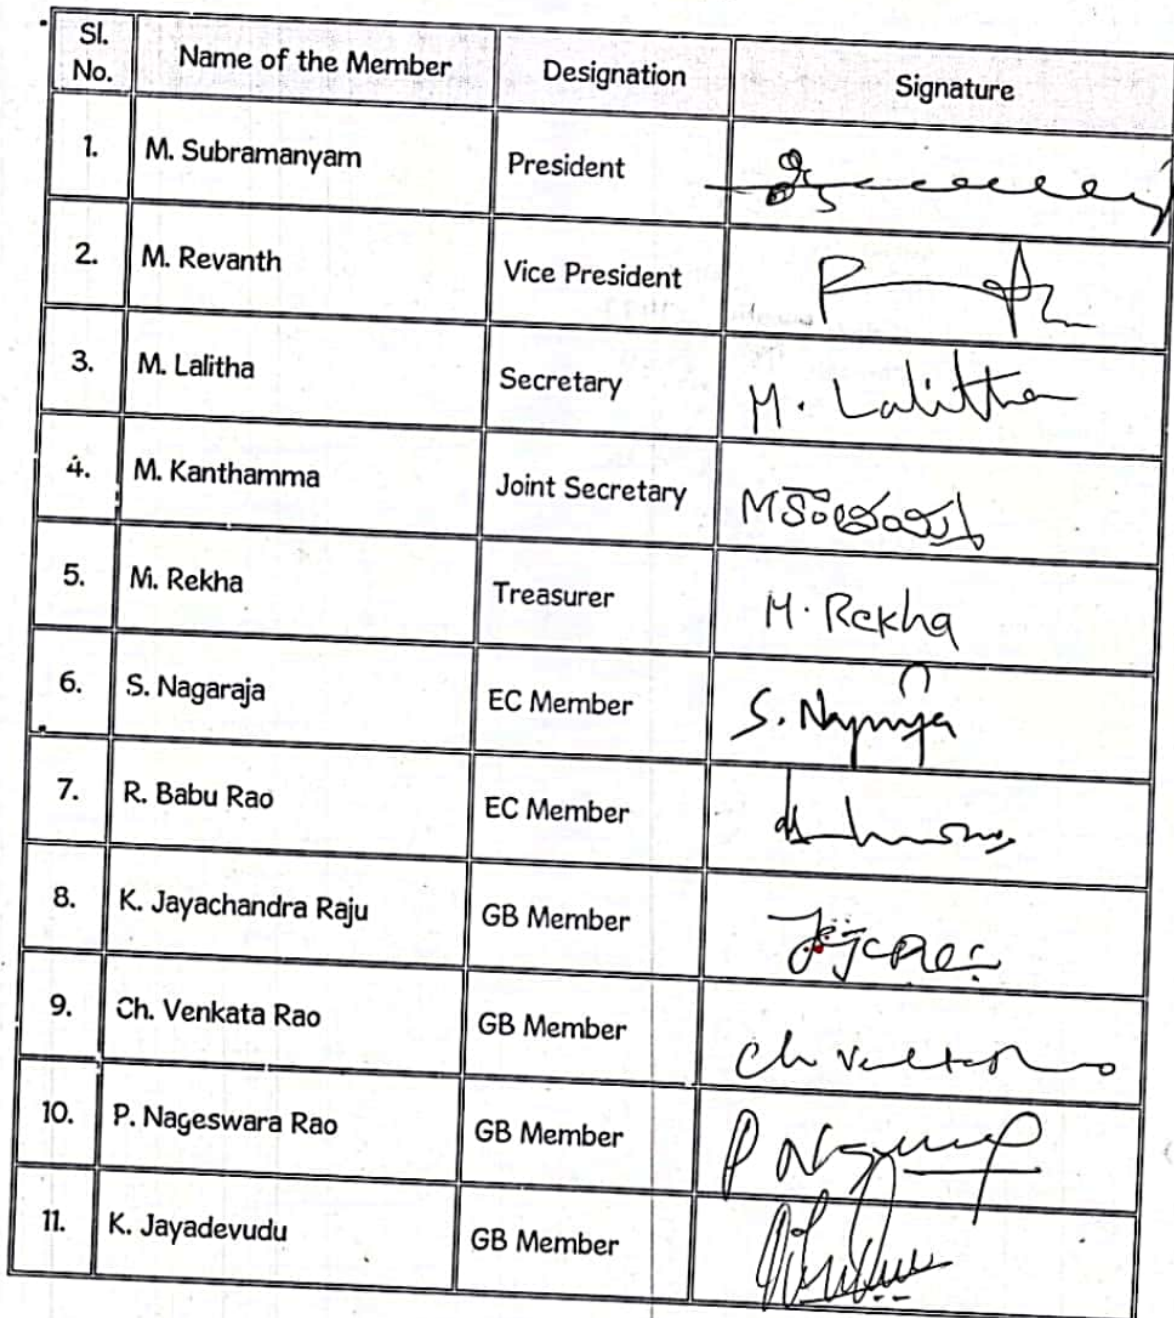 Sl. No. Name of the Member Designation Signature
1. M. Subramanyam President
2. M. Revanth Vice President
3. M. Lalitha Secretary M. Lalitha
4. M. Kanthamma Joint Secretary
5. M. Rekha Treasurer M. Rekha
6. S. Nagaraja EC Member S.
7. R. Babu Rao EC Member
8. K. Jayachandra Raju GB Member
9. Ch. Venkata Rao GB Member Ch
10. P. Nageswara Rao GB Member P
11. K. Jayadevudu GB Member